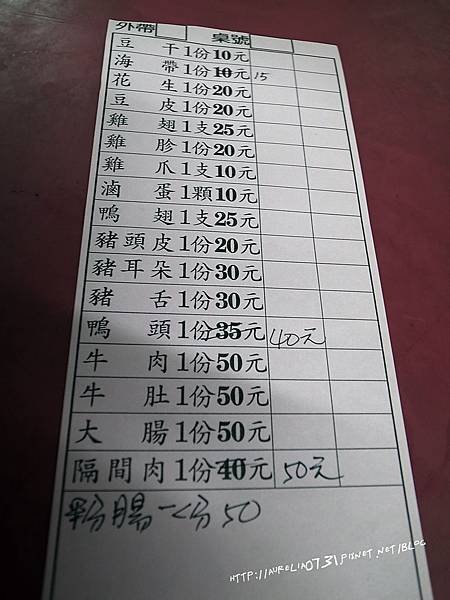 外帶 桌號
豆干1份10元
海帶1份10元 15
花生1份20元
豆皮1份20元
雞翅1支25元
雞胗1份20元
雞爪1支10元
滷蛋1顆10元
鴨翅1支25元
豬頭皮1份20元
豬耳朵1份30元
豬舌1份30元
鴨頭1份35元 40元
牛肉1份50元
牛肚1份50元
大腸1份50元
隔間肉1份40元 50元
粉腸一份50
HTTP://AURELIA0731.PIXNET.NET/BLOG